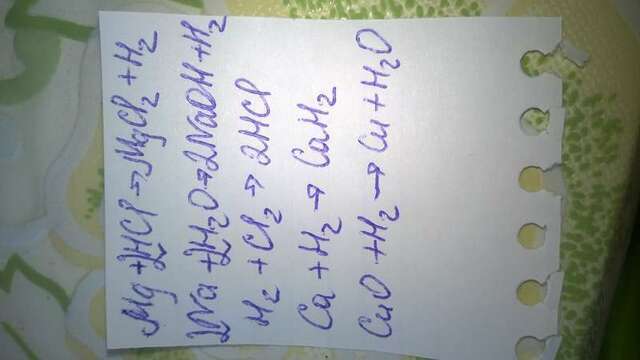 Mg + 2HCl → MgCl₂ + H₂
2Na + 2H₂O → 2NaOH + H₂
H₂ + Cl₂ → 2HCl
Ca + H₂ → CaH₂
CuO + H₂ → Cu + H₂O